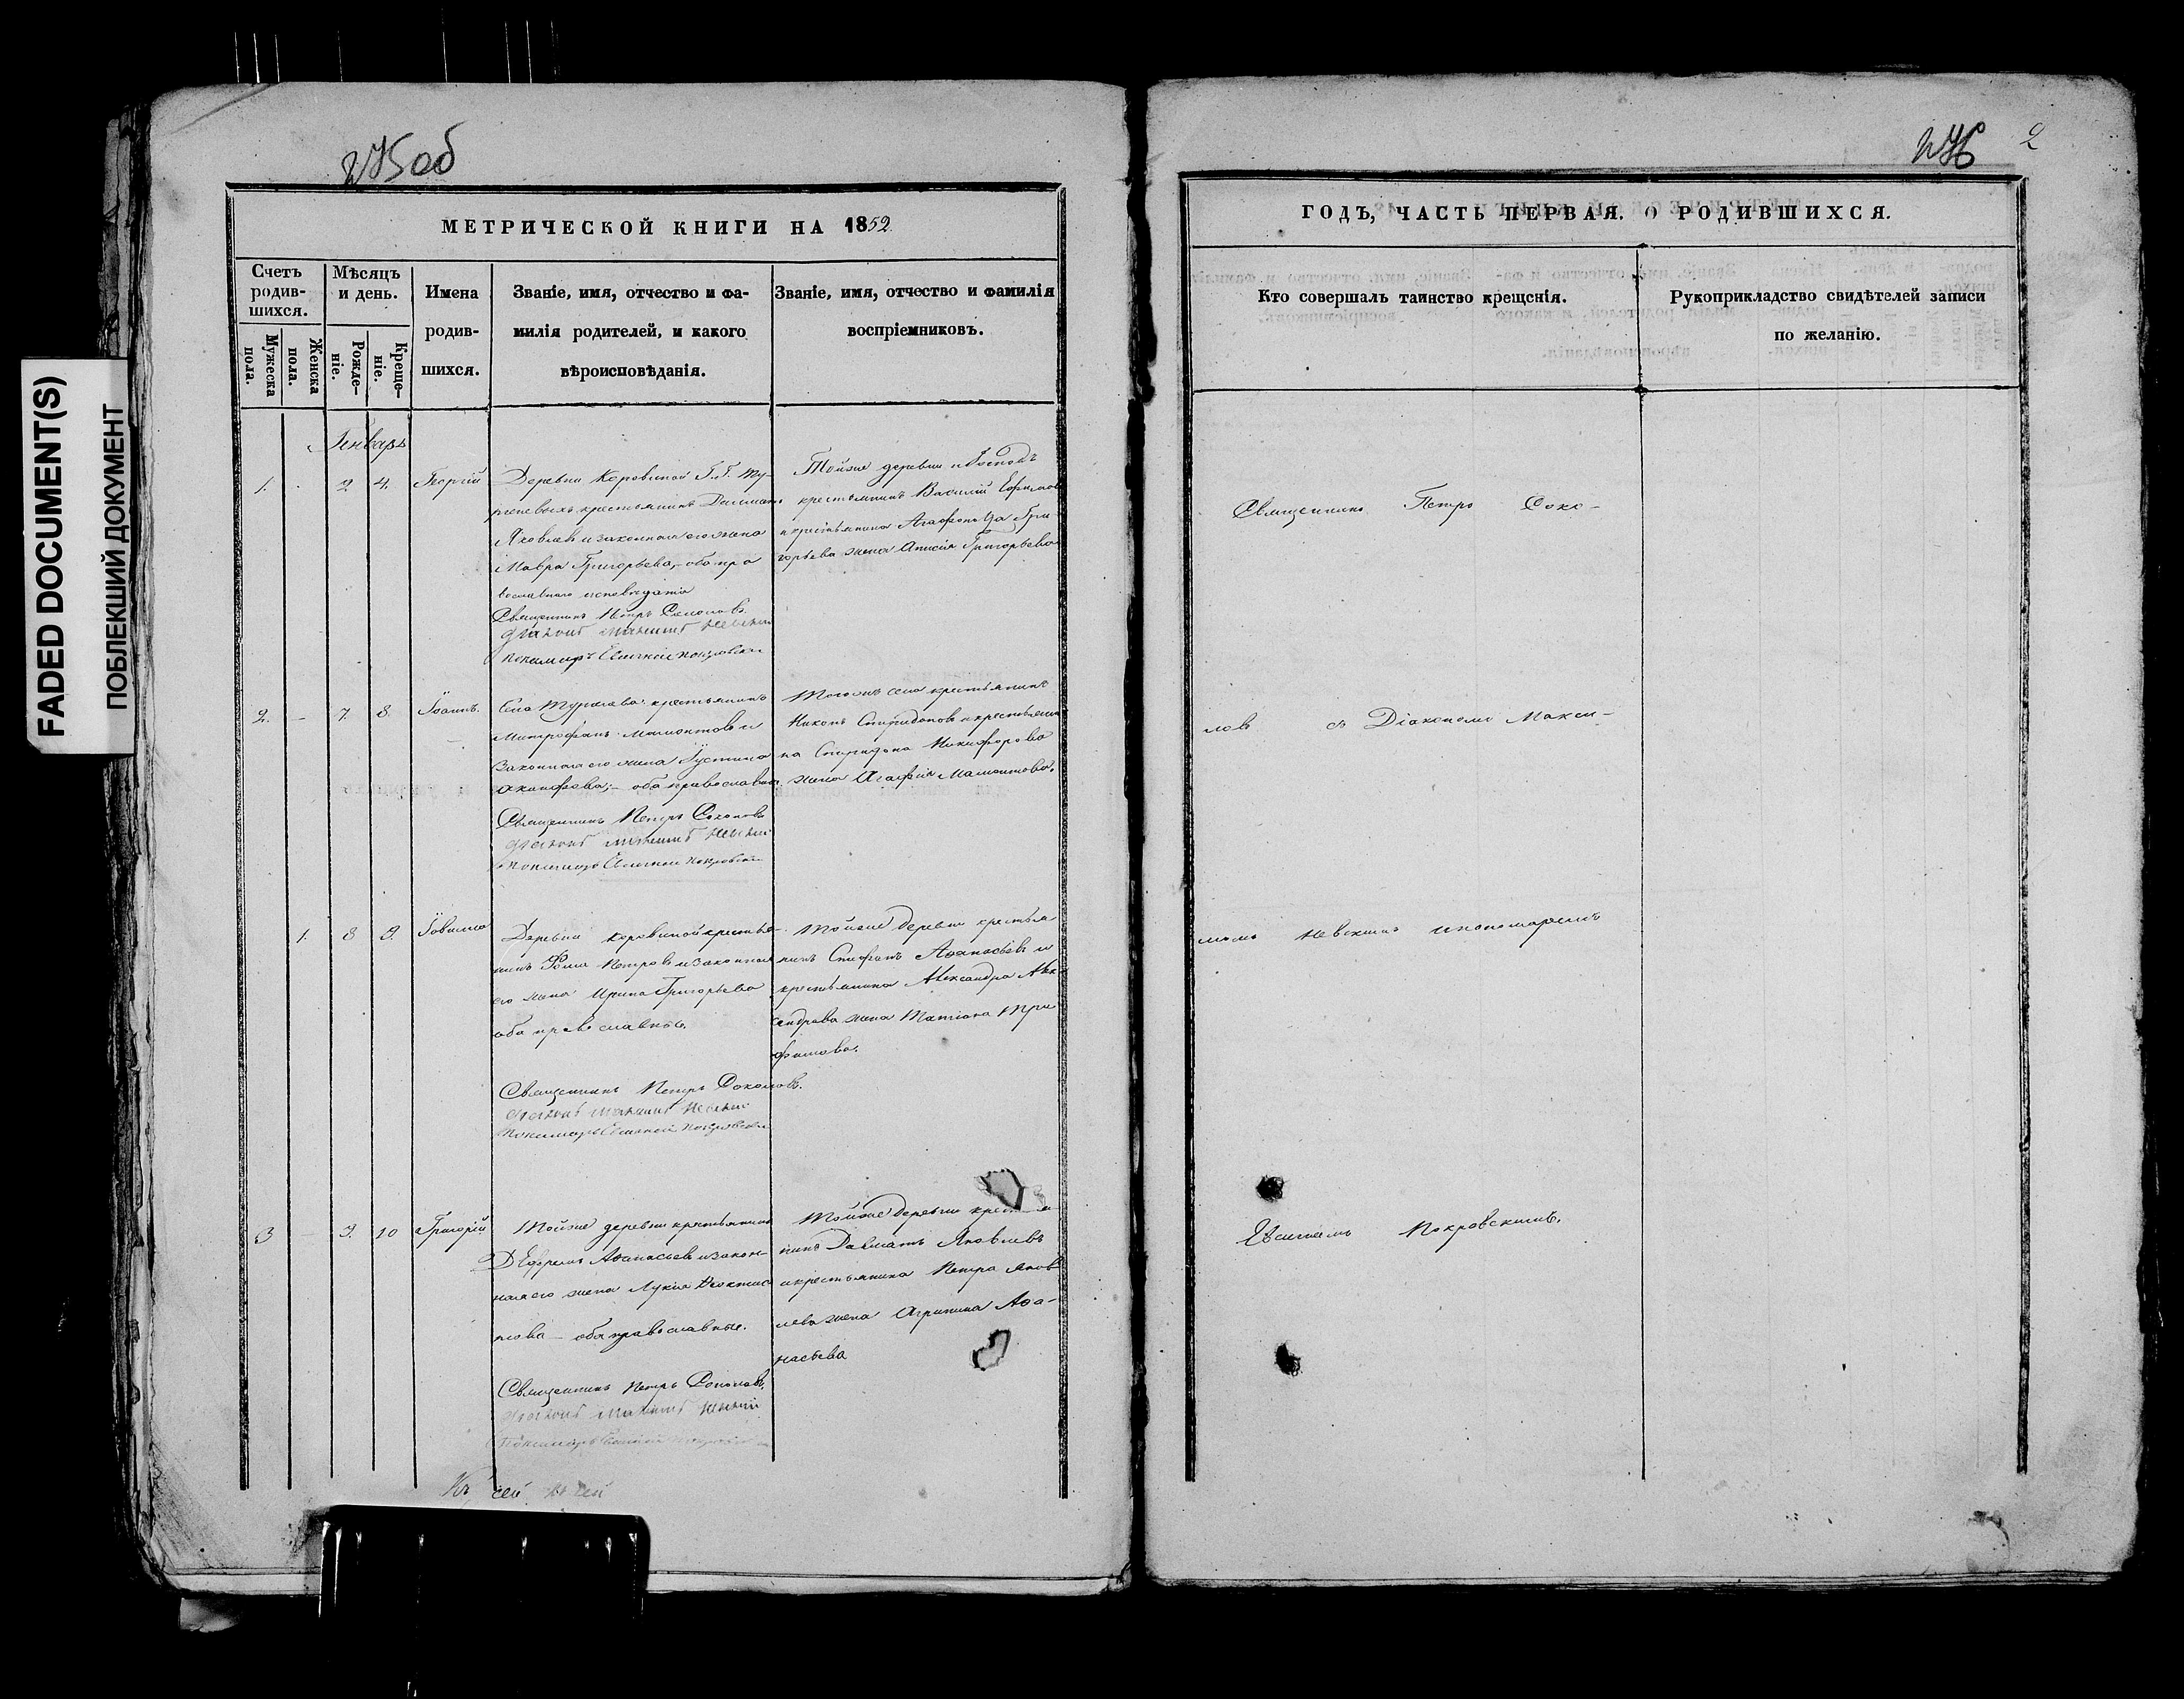 FADED DOCUMENT(S)
ПОБЛЕКШИЙ ДОКУМЕНТ
об
МЕТРИЧЕСКОЙ КНИГИ НА 1852
Счетъ родив-
шихся.
Мужеска пола.
Женска пола.
Мѣсяцъ
и день.
Рожде-
ніе.
Креще-
ніе.
Имена
родив-
шихся.
Званіе, имя, отчество и фа-
милія родителей, и какого
вѣроисповѣданія.
Званіе, имя, отчество и фамилія
воспріемниковъ.
Генварь
1. 2 4. Георгій
Деревни Коровиной Г.Г. Тур-
геневыхъ крестьянинъ
Яковлевъ и законная его жена
Мавра Григорьева, оба пра
вославнаго исповѣданія
Священникъ Петръ Соколовъ
Діаконъ Максимъ Невскій
Пономарь Евсигней Покровскій
Тойже деревни и Господъ
крестьянинъ Василій Ефимовъ
и крестьянина Агафона Гри
горьева жена Анисія Григорьева
2. - 7. 8. Іоаннъ.
Села Тургенева крестьянинъ
Митрофанъ Мамонтовъ и
законная его жена Іустина
оба православные
Священникъ Петръ Соколовъ
Діаконъ Максимъ Невскій
Пономарь Евсигней Покровскій
Тогожъ села крестьянинъ
Никонъ Спиридоновъ и крестьяни
на Спиридона Никифорова
жена Агафія Мамонтова.
1. 8 9.
Деревни Коровиной крестья-
нинъ Фома Петровъ и законная
его жена Ирина Григорьева
оба православные.
Священникъ Петръ Соколовъ.
Діаконъ Максимъ Невскій
Пономарь Евсигней Покровскій
Тойже деревни крестья
нинъ Стефанъ Аѳанасьевъ и
крестьянина Александра Алек
сандрова жена Татіана Три
фонова.
3 9. 10 Григорій
Тойже деревни крестьянинъ
Ефремъ Аѳанасьевъ и закон-
ная его жена Лукія
оба православные.
Священникъ Петръ Соколовъ,
Діаконъ Максимъ Невскій
Пономарь Евсигней Покровскій
Тойже деревни кресть
нинъ Далматъ Яковлевъ
и крестьянина Петра Яков
лева жена Агрипина Аѳа-
насьева
Къ сей
2
ГОДЪ, ЧАСТЬ ПЕРВАЯ. О РОДИВШИХСЯ.
Кто совершалъ таинство крещенія.
Рукоприкладство свидѣтелей записи
по желанію.
Священникъ Петръ Соко-
ловъ съ Діакономъ Макси-
момъ Невскимъ и пономаремъ
Евсигнеемъ Покровскимъ.